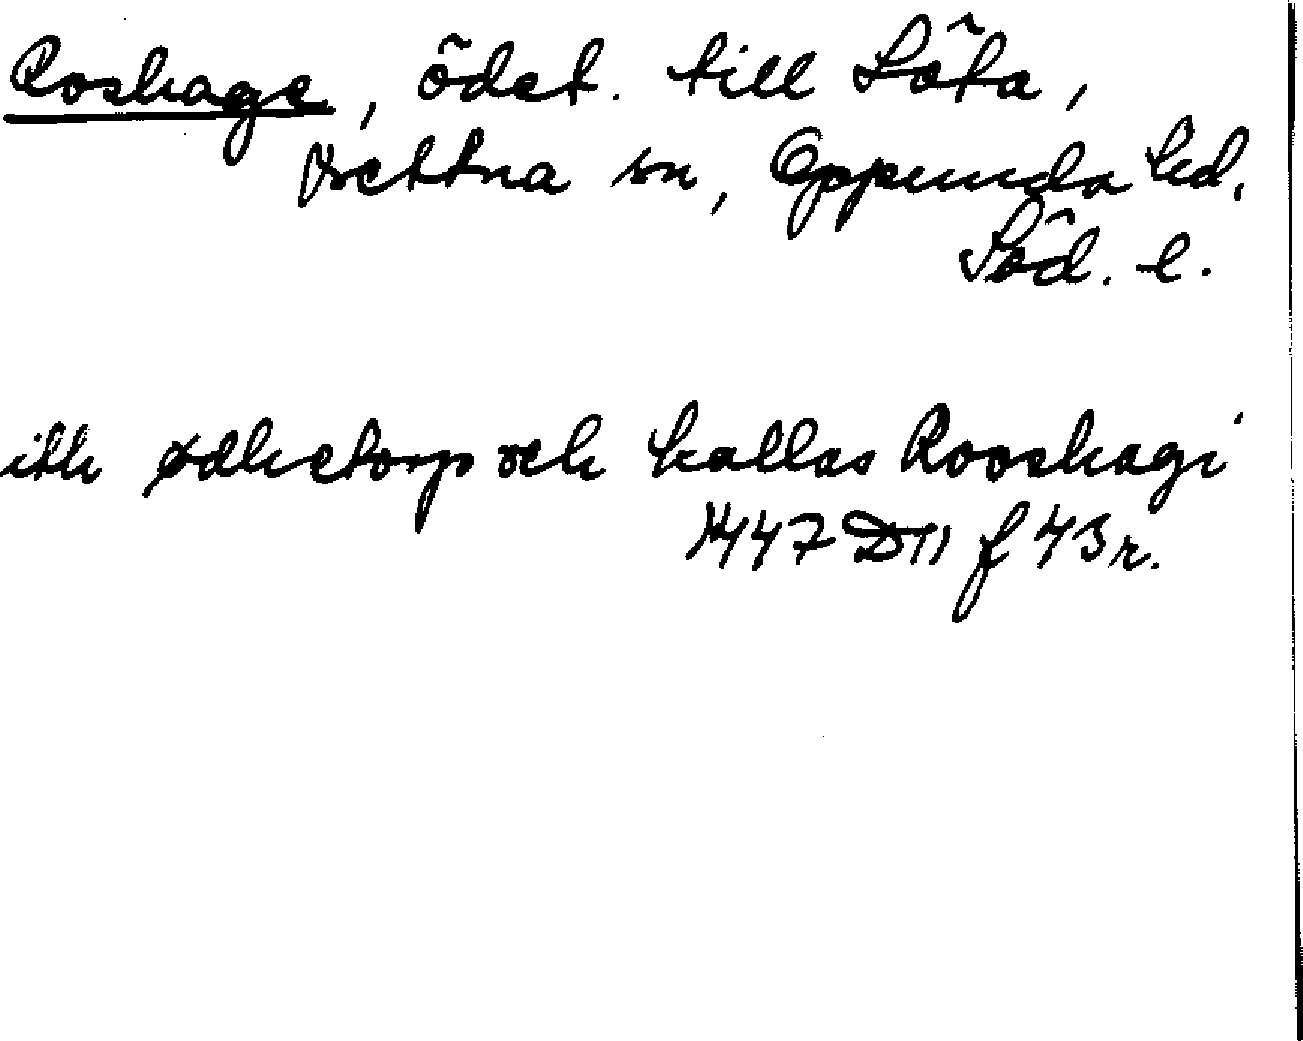 Roshage, ödet. till Söta,
Vrettna sn, Oppunda hd,
Söd. l.
ith ødhetorp och kallas Rooshagi
1447 D11 f 43 r.